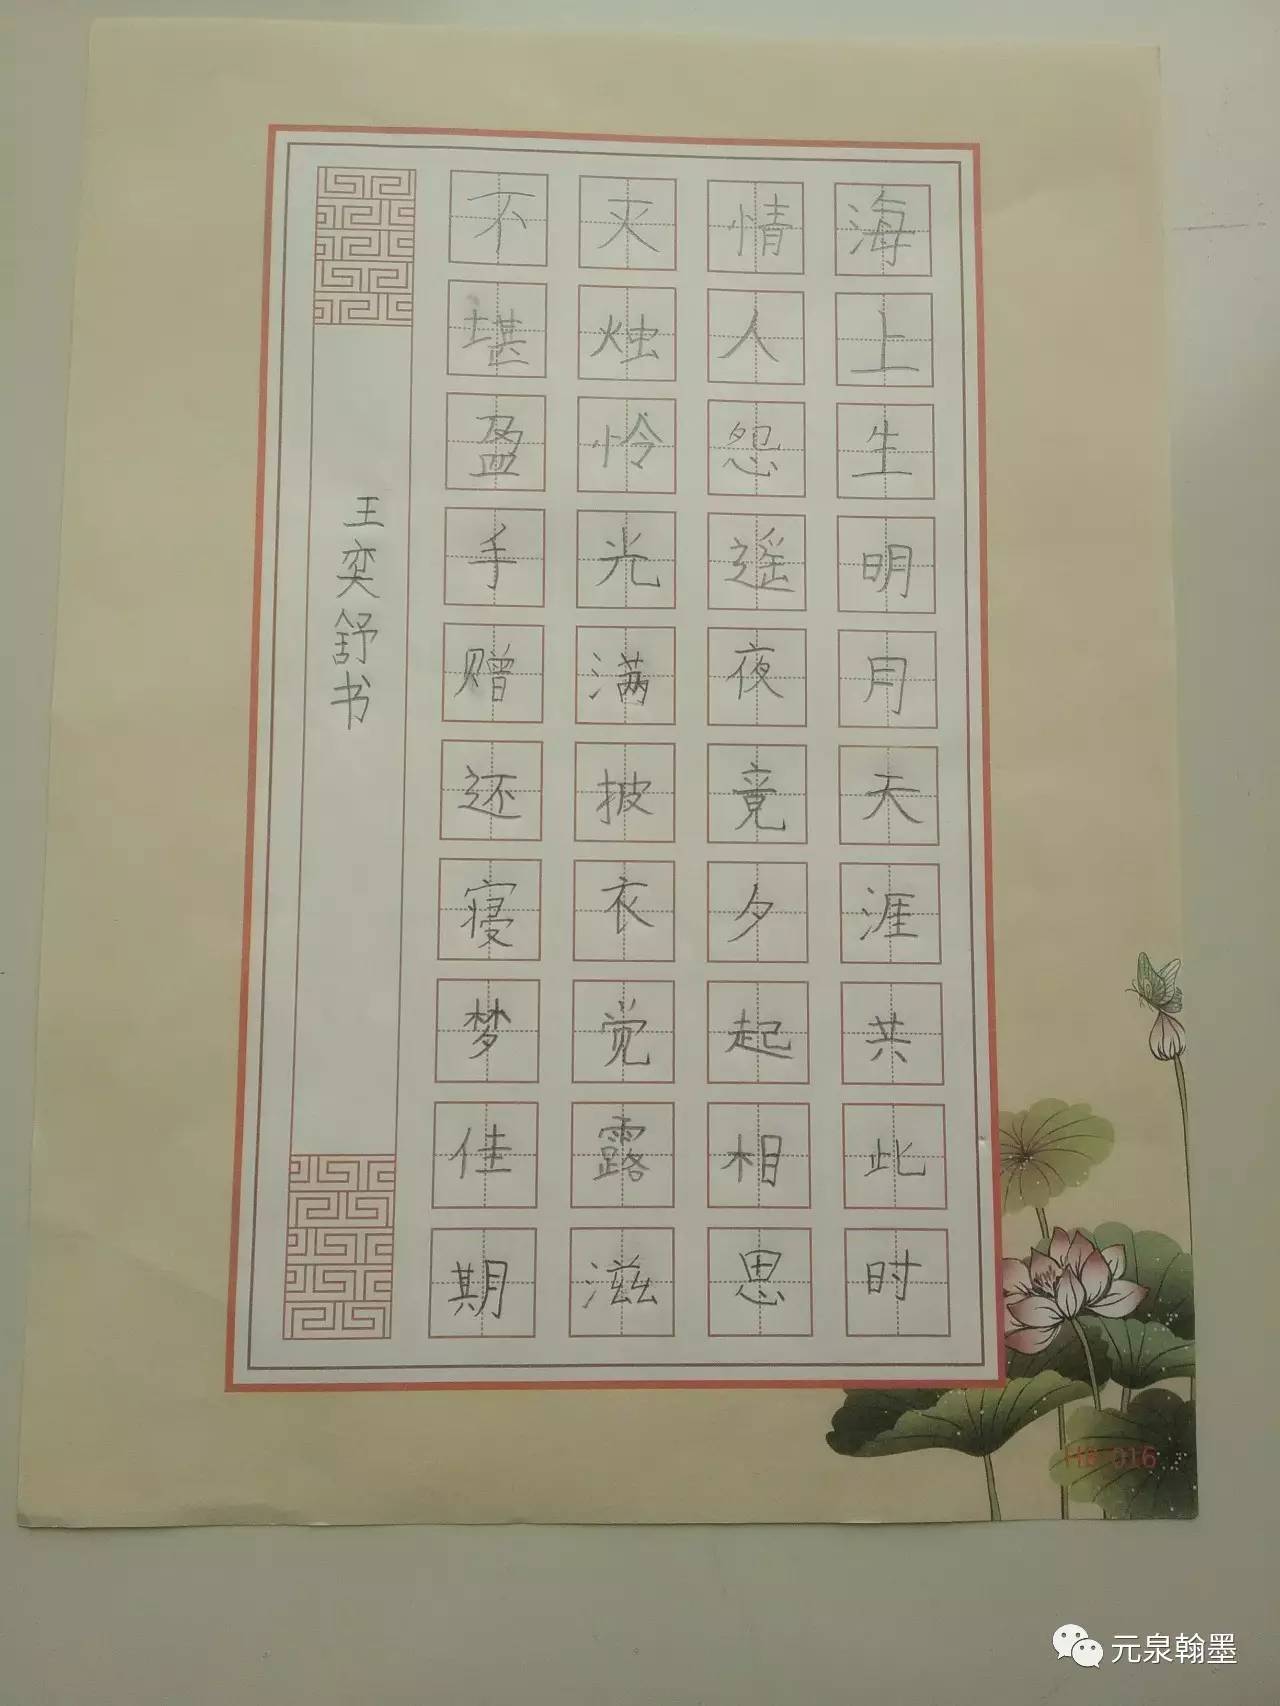 海上生明月天涯共此时
情人怨遥夜竟夕起相思
灭烛怜光满披衣觉露滋
不堪盈手赠还寝梦佳期
王奕舒书
HB-016
元泉翰墨